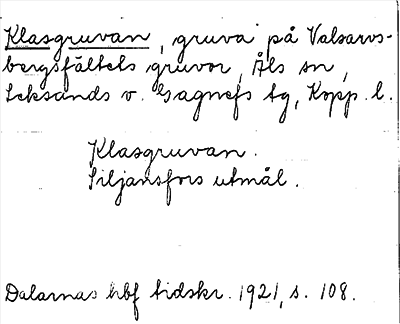 Klasgruvan, gruva på Valsarvs-
bergsfältets gruvor, Åls sn,
Leksands o. Gagnefs tg, Kopp. l.
Klasgruvan.
Siljansfors utmål.
Dalarnas hbf tidskr. 1921, s. 108.